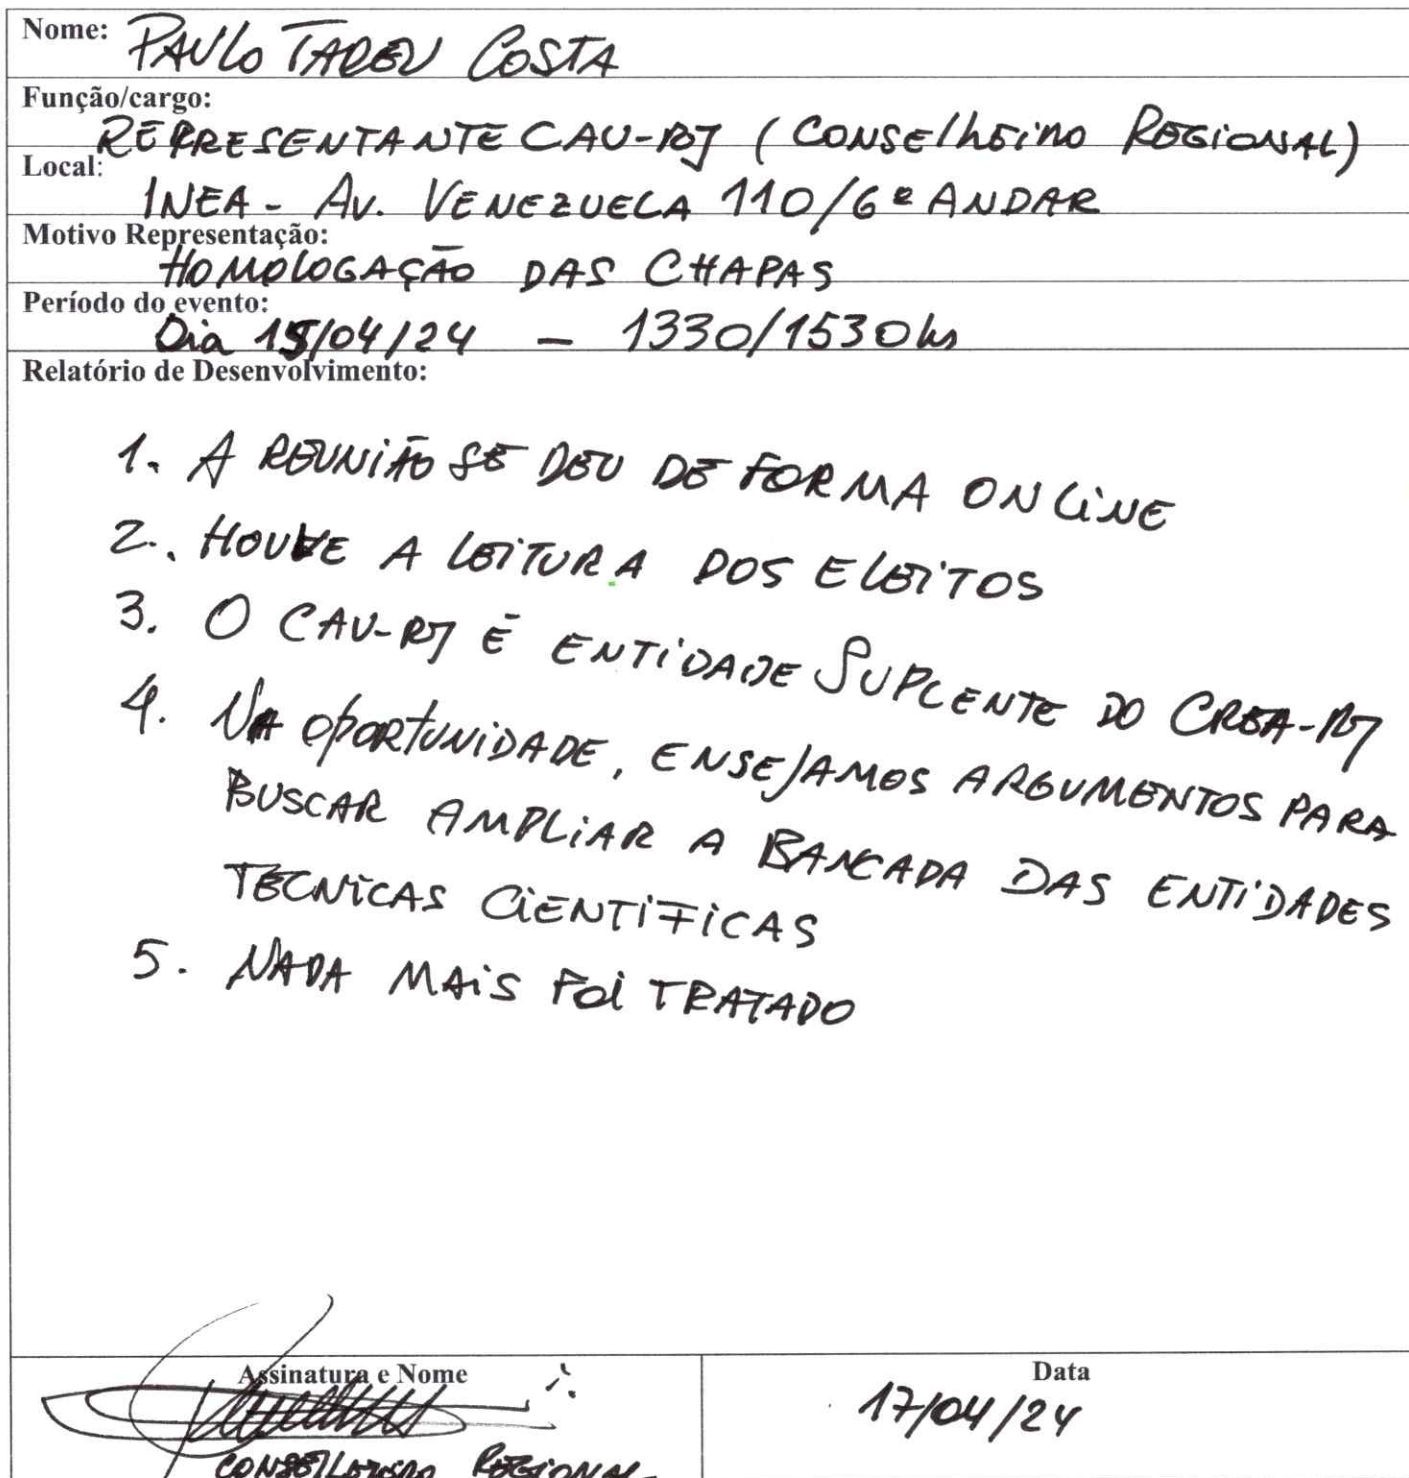 Nome: PAULO TADEU COSTA
Função/cargo:
REPRESENTANTE CAU-RJ (CONSELHEIRO REGIONAL)
Local:
INEA - AV. VENEZUELA 110/6º ANDAR
Motivo Representação:
HOMOLOGAÇÃO DAS CHAPAS
Período do evento:
Dia 15/04/24 - 1330/1530hs
Relatório de Desenvolvimento:
1. A REUNIÃO SE DEU DE FORMA ONLINE
2. HOUVE A LEITURA DOS ELEITOS
3. O CAU-RJ É ENTIDADE SUPLENTE DO CREA-RJ
4. NA OPORTUNIDADE, ENSEJAMOS ARGUMENTOS PARA
BUSCAR AMPLIAR A BANCADA DAS ENTIDADES
TECNICAS CIENTIFICAS
5. NADA MAIS FOI TRATADO
Assinatura e Nome
CONSELHEIRO REGIONAL
Data
17/04/24